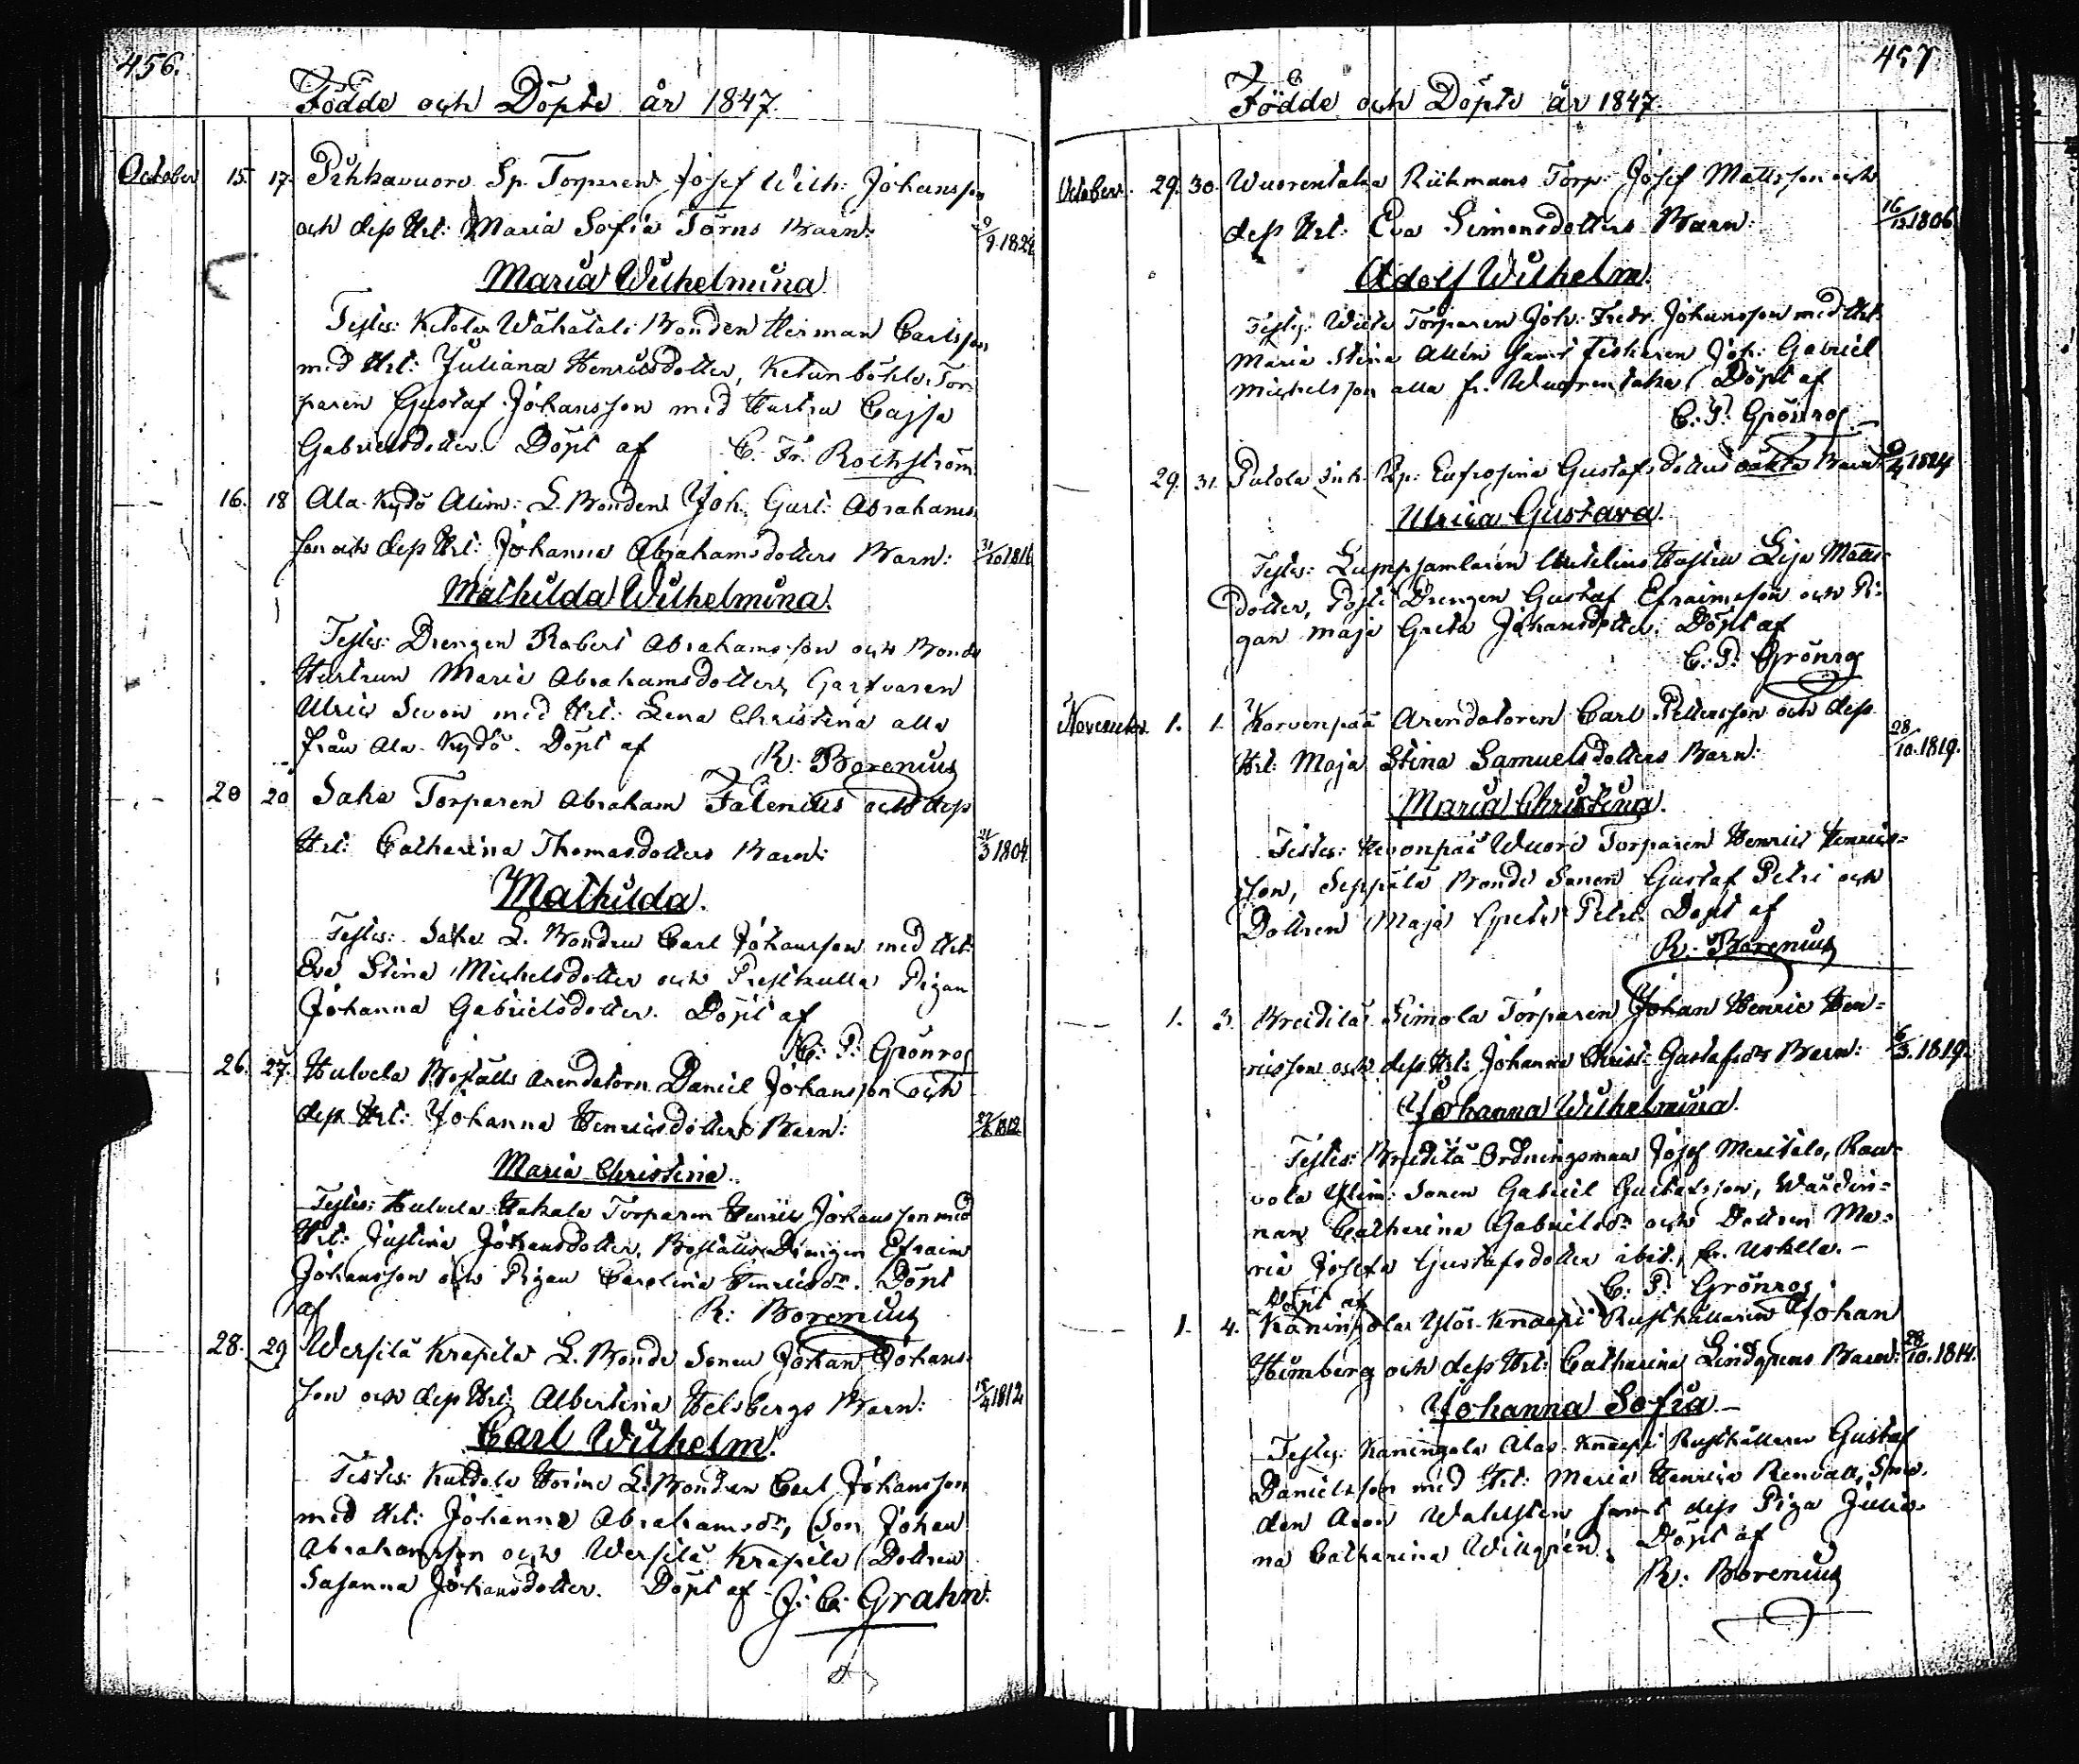 456.
Födde och Döpte år 1847.
October 15. 17. Pihkavuore Sp. Torparen Josef Wilh: Johansson
och dess Hst: Maria Sofia Törns Barn: 9.1822
Maria Wilhelmina
Testes: Ketola Wähätalo Bonden Herman Carlsson
med Hst: Juliana Henricsdotter, Ketunböhle Tor
paren Gustaf Johansson med Hustru Cajsa
Gabrielsdotter. Döpt af C. Fr. Rothström
16. 18 Ala-Kydö Alim: L. Bonden Joh. Gust: Abrahams
son och dess Hst: Johanna Abrahamsdotters Barn: 31/10 1816
Mathilda Wilhelmina.
Testes: Drengen Robert Abrahamsson och Bonde
Hustrun Maria Abrahamsdotter, Garfvaren
Ulric Sevon med Hst: Lena Christina alla
från Ala-Kydö. Döpt af R. Borenius
20 20 Saha Torparen Abraham Falenius och dess
Hst: Catharina Thomasdotters Barn: 21/3 1804
Mathilda.
Testes: Saha L. Bonden Carl Johansson med Hst:
Eva Stina Michelsdotter och Prestkulla Pigan
Johanna Gabrielsdotter. Döpt af
C: P: Grönros
26. 27. Hulvela Boställs Arendatorn Daniel Johansson och
dess Hst: Johanna Henricsdotters Barn: 1812
Maria Christina.
Testes: Hulvela Hakala Torparen Henric Johansson med
Hst: Justina Johansdotter, Boställs Drengen Efraim
Johansson och Pigan Carolina Henricsdr. Döpt
af R: Borenius
28. 29 Wersilä Krapila L. Bonde Sonen Johan Johans-
son och dess Hst: Albertina Helsbergs Barn: 18/4 1812
Carl Wilhelm.
Testes: Kuldola Horime L. Bonden Carl Johansson
med Hst: Johanna Abrahamsdr, Son Johan
Abrahamsson och Wersilä Krapila Dottren
Susanna Johansdotter. Döpt af J: C: Grahn.
457
Födde och Döpte år 1847.
October 29. 30. Wuorentaka Riikmans Torp: Josef Mattsson och
dess Hst: Eva Simonsdotters Barn: 16/12 1806
Adolf Wilhelm.
Testes: Torparen Joh: Fredr. Johansson med Hst:
Maria Stina Allén samt Fiskaren Joh: Gabriel
Michelsson alla fr. Wuorentaka. Döpt af
C: P: Grönros
29. 31. Palola Inh. Pig: Eufrosina Gustafsdotters oäkta Barn 1824
Ulrica Gustava.
Testes: Lumpsamlaren Hustru Lisa Matts-
dotter, Drengen Gustaf Efraimsson och Pi-
gan Maja Greta Johansdotter. Döpt af
C: P: Grönros
November. 1. 1. Korvenpää Arendatoren Carl Pettersson och dess
Hst: Maja Stina Samuelsdotters Barn: 28/10 1819.
Maria Christina.
Testes: Wuori Torparen Henric Henrics-
son, Seppälä Bonde Sonen Gustaf Petri och
Dottren Maja Greta Petri. Döpt af
R: Borenius
1. 3. Breidilä Simola Torparen Johan Henric Hen-
ricsson och dess Hst: Johanna Christ: Gustafsdr Barn: 6/3. 1819.
Johanna Wilhelmina.
Testes: Breidilä Ordningsman Josef Meritalo, Rau-
vola Ylim: Sonen Gabriel Gustafsson, Wärdin-
nan Catharina Gabrielsdr och Dottren Ma-
ria Josefa Gustafsdotter ibid., fr. Uskela.-
Döpt af C: P: Grönros
1. 4. Kaningola Ylös-Knaapi Rusthållaren Johan
Himberg och dess Hst: Catharina Lindgrens Barn: 28/10. 1814.
Johanna Sofia.-
Testes: Kaningola Alas-Knaapi Rusthållaren Gustaf
Danielsson med Hst: Maria Henrica Renvall, Sme-
den Aron Wahlsten samt dess Piga Julia-
na Catharina Willgrén. Döpt af
R: Borenius